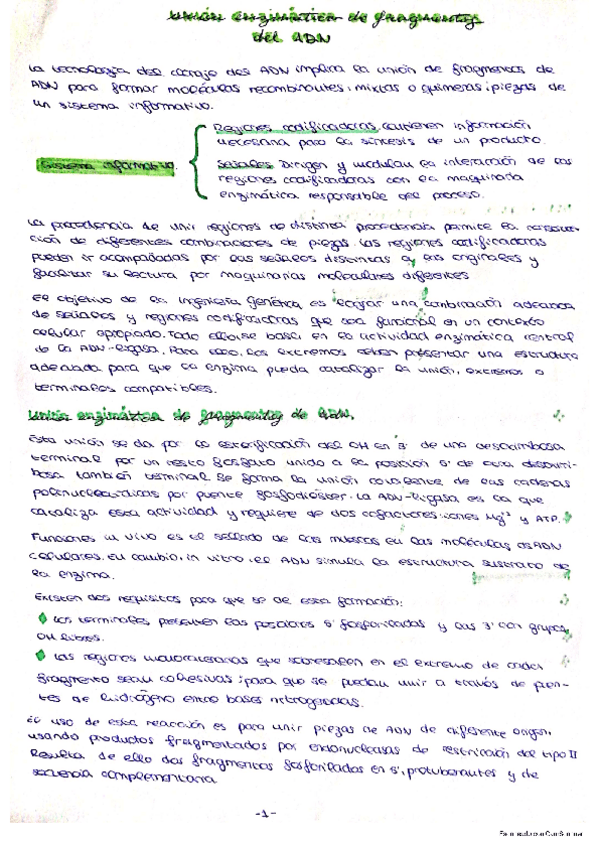 Unión enzimática de fragmentos
del ADN
La tecnología del clonaje del ADN implica la unión de fragmentos de
ADN para formar moléculas recombinantes, mixtas o quimeras: piezas de
un sistema informativo.
Sistema informativo.
Regiones codificadoras contienen información
necesaria para la síntesis de un producto.
Señales Dirigen y modulan la interacción de las
regiones codificadoras con la maquinaria
enzimática responsable del proceso.
La procedencia de unir regiones de distinta procedencia permite la
ción de diferentes combinaciones de piezas. Las regiones codificadoras
pueden ir acompañadas por las señales distintas a las originales y
facilitar su lectura por maquinarias moleculares diferentes.
El objetivo de la ingeniería genética es una combinación adecuada
de señales y regiones codificadoras que sea funcional en un contexto
celular apropiado. Todo ello se basa en la actividad enzimática central
de la ADN-ligasa. Para ello, los extremos deben presentar una estructura
adecuada para que la enzima pueda catalizar la unión, extremos o
terminales compatibles.
Unión enzimática de fragmentos de ADN.
Esta unión se da por la esterificación del OH en 3' de una desoxirribosa
terminal por un resto fosfato unido a la posición 5' de otra desoxirri-
bosa también terminal. Se forma la unión covalente de las cadenas
polinucleotídicas por puente fosfodiéster. La ADN-ligasa es la que
cataliza esta actividad y requiere de dos cofactores: iones Mg²⁺ y ATP.
Funciones in vivo es el sellado de las muescas en las moléculas de ADN
celulares. En cambio, in vitro, el ADN simula la estructura sustrato de
la enzima.
Existen dos requisitos para que se dé esta formación:
Las terminales presenten las posiciones 5' fosforiladas y las 3' con grupos
OH libres.
Las regiones monocatenarias que sobresalen en el extremo de cada
fragmento sean cohesivas; para que se puedan unir a través de puen-
tes de hidrógeno entre bases nitrogenadas.
El uso de esta reacción es para unir piezas de ADN de diferente origen,
usando productos fragmentados por endonucleasas de restricción del tipo II
Resulta de ello dos fragmentos fosforilados en 5', protuberantes y de
secuencia complementaria
-1-